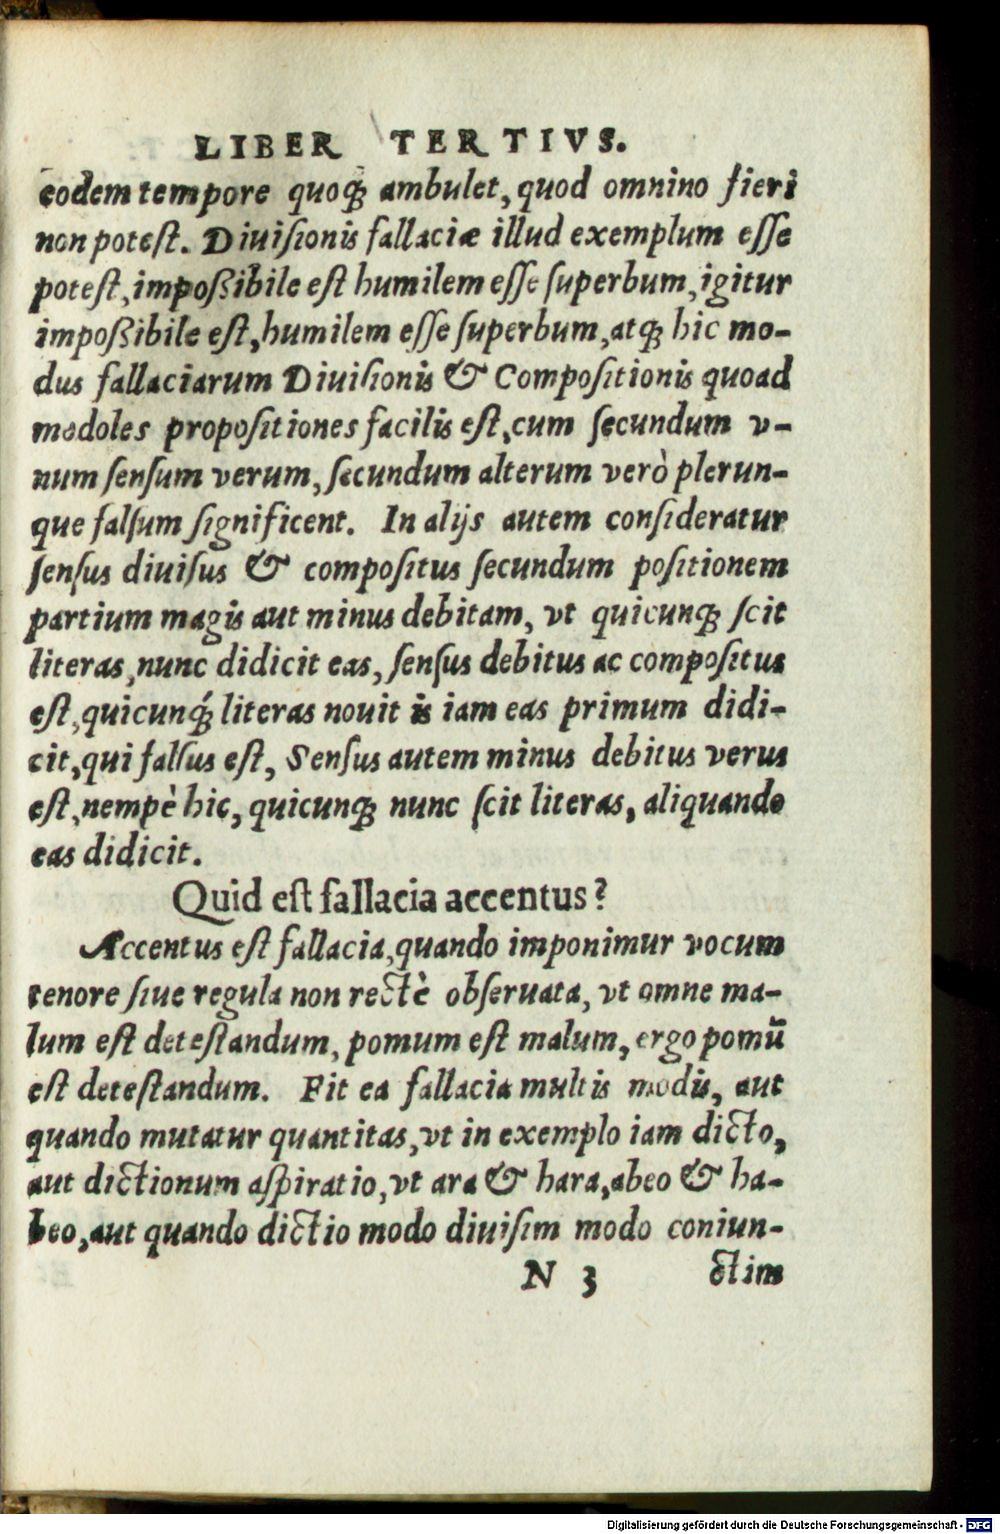 LIBER TERTIVS.
eodem tempore quoqꝫ ambulet, quod omnino fieri
non potest. Diuiſionis fallaciæ illud exemplum eſſe
poteſt, impoßibile eſt humilem eſſe ſuperbum, igitur
impoßibile eſt, humilem eſſe ſuperbum, atqꝫ hic mo-
dus fallaciarum Diuiſionis & Compoſitionis quoad
modoles propoſitiones facilis eſt, cum ſecundum v-
num ſenſum verum, ſecundum alterum verò plerun-
que falſum ſignificent. In alijs autem conſideratur
ſenſus diuiſus & compoſitus ſecundum poſitionem
partium magis aut minus debitam, vt quicunqꝫ ſcit
literas, nunc didicit eas, ſenſus debitus ac compoſitus
eſt, quicunqꝫ́ literas nouit is iam eas primum didi-
cit, qui falſus eſt, Senſus autem minus debitus verus
eſt, nempè hic, quicunqꝫ nunc ſcit literas, aliquando
eas didicit.
Quid eſt fallacia accentus?
Accentus eſt fallacia, quando imponimur vocum
tenore ſiue regula non rectè obſeruata, vt omne ma-
lum eſt deteſtandum, pomum eſt malum, ergo pomū
eſt deteſtandum. Fit ea fallacia multis modis, aut
quando mutatur quantitas, vt in exemplo iam dicto,
aut dictionum aſpiratio, vt ara & hara, abeo & ha-
beo, aut quando dictio modo diuiſim modo coniun-
N 3 ctim
Digitalisierung gefördert durch die Deutsche Forschungsgemeinschaft - DFG